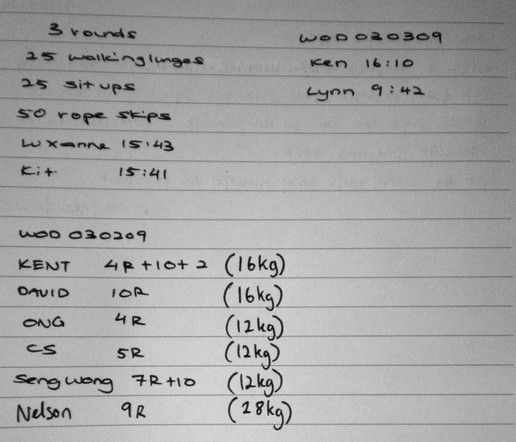 3 rounds
25 walking lunges
25 sit ups
50 rope skips
Luxanne 15:43
Kit 15:41
WOD 020309
Ken 16:10
Lynn 9:42
WOD 030209
KENT 4R+10+2 (16kg)
DAVID 10R (16kg)
ONG 4R (12kg)
CS 5R (12kg)
Seng Wong 7R+10 (12kg)
Nelson 9R (28kg)